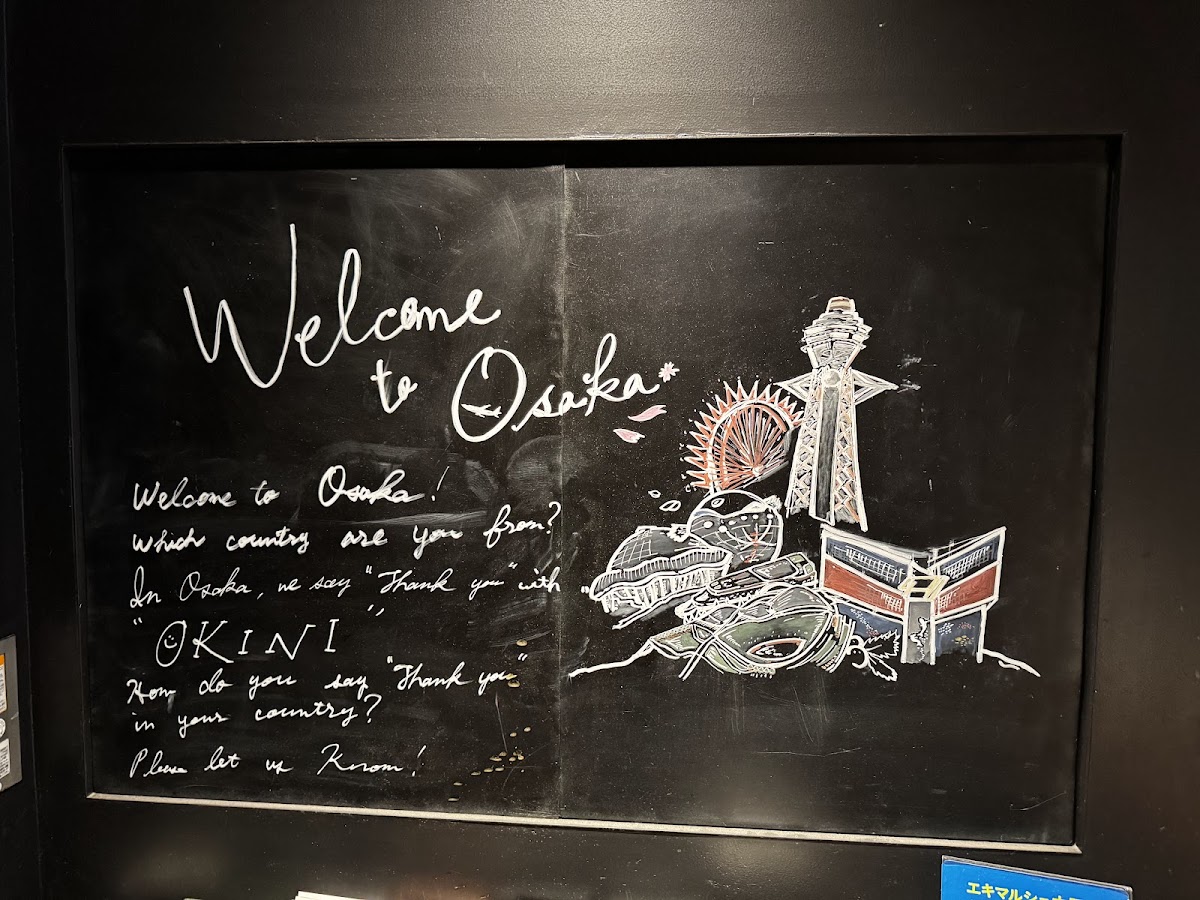 Welcome
to Osaka*
Welcome to Osaka!
Which country are you from?
In Osaka, we say "Thank you" with
"OKINI"
How do you say "Thank you"
in your country?
Please let us know!
エキマルシェ大